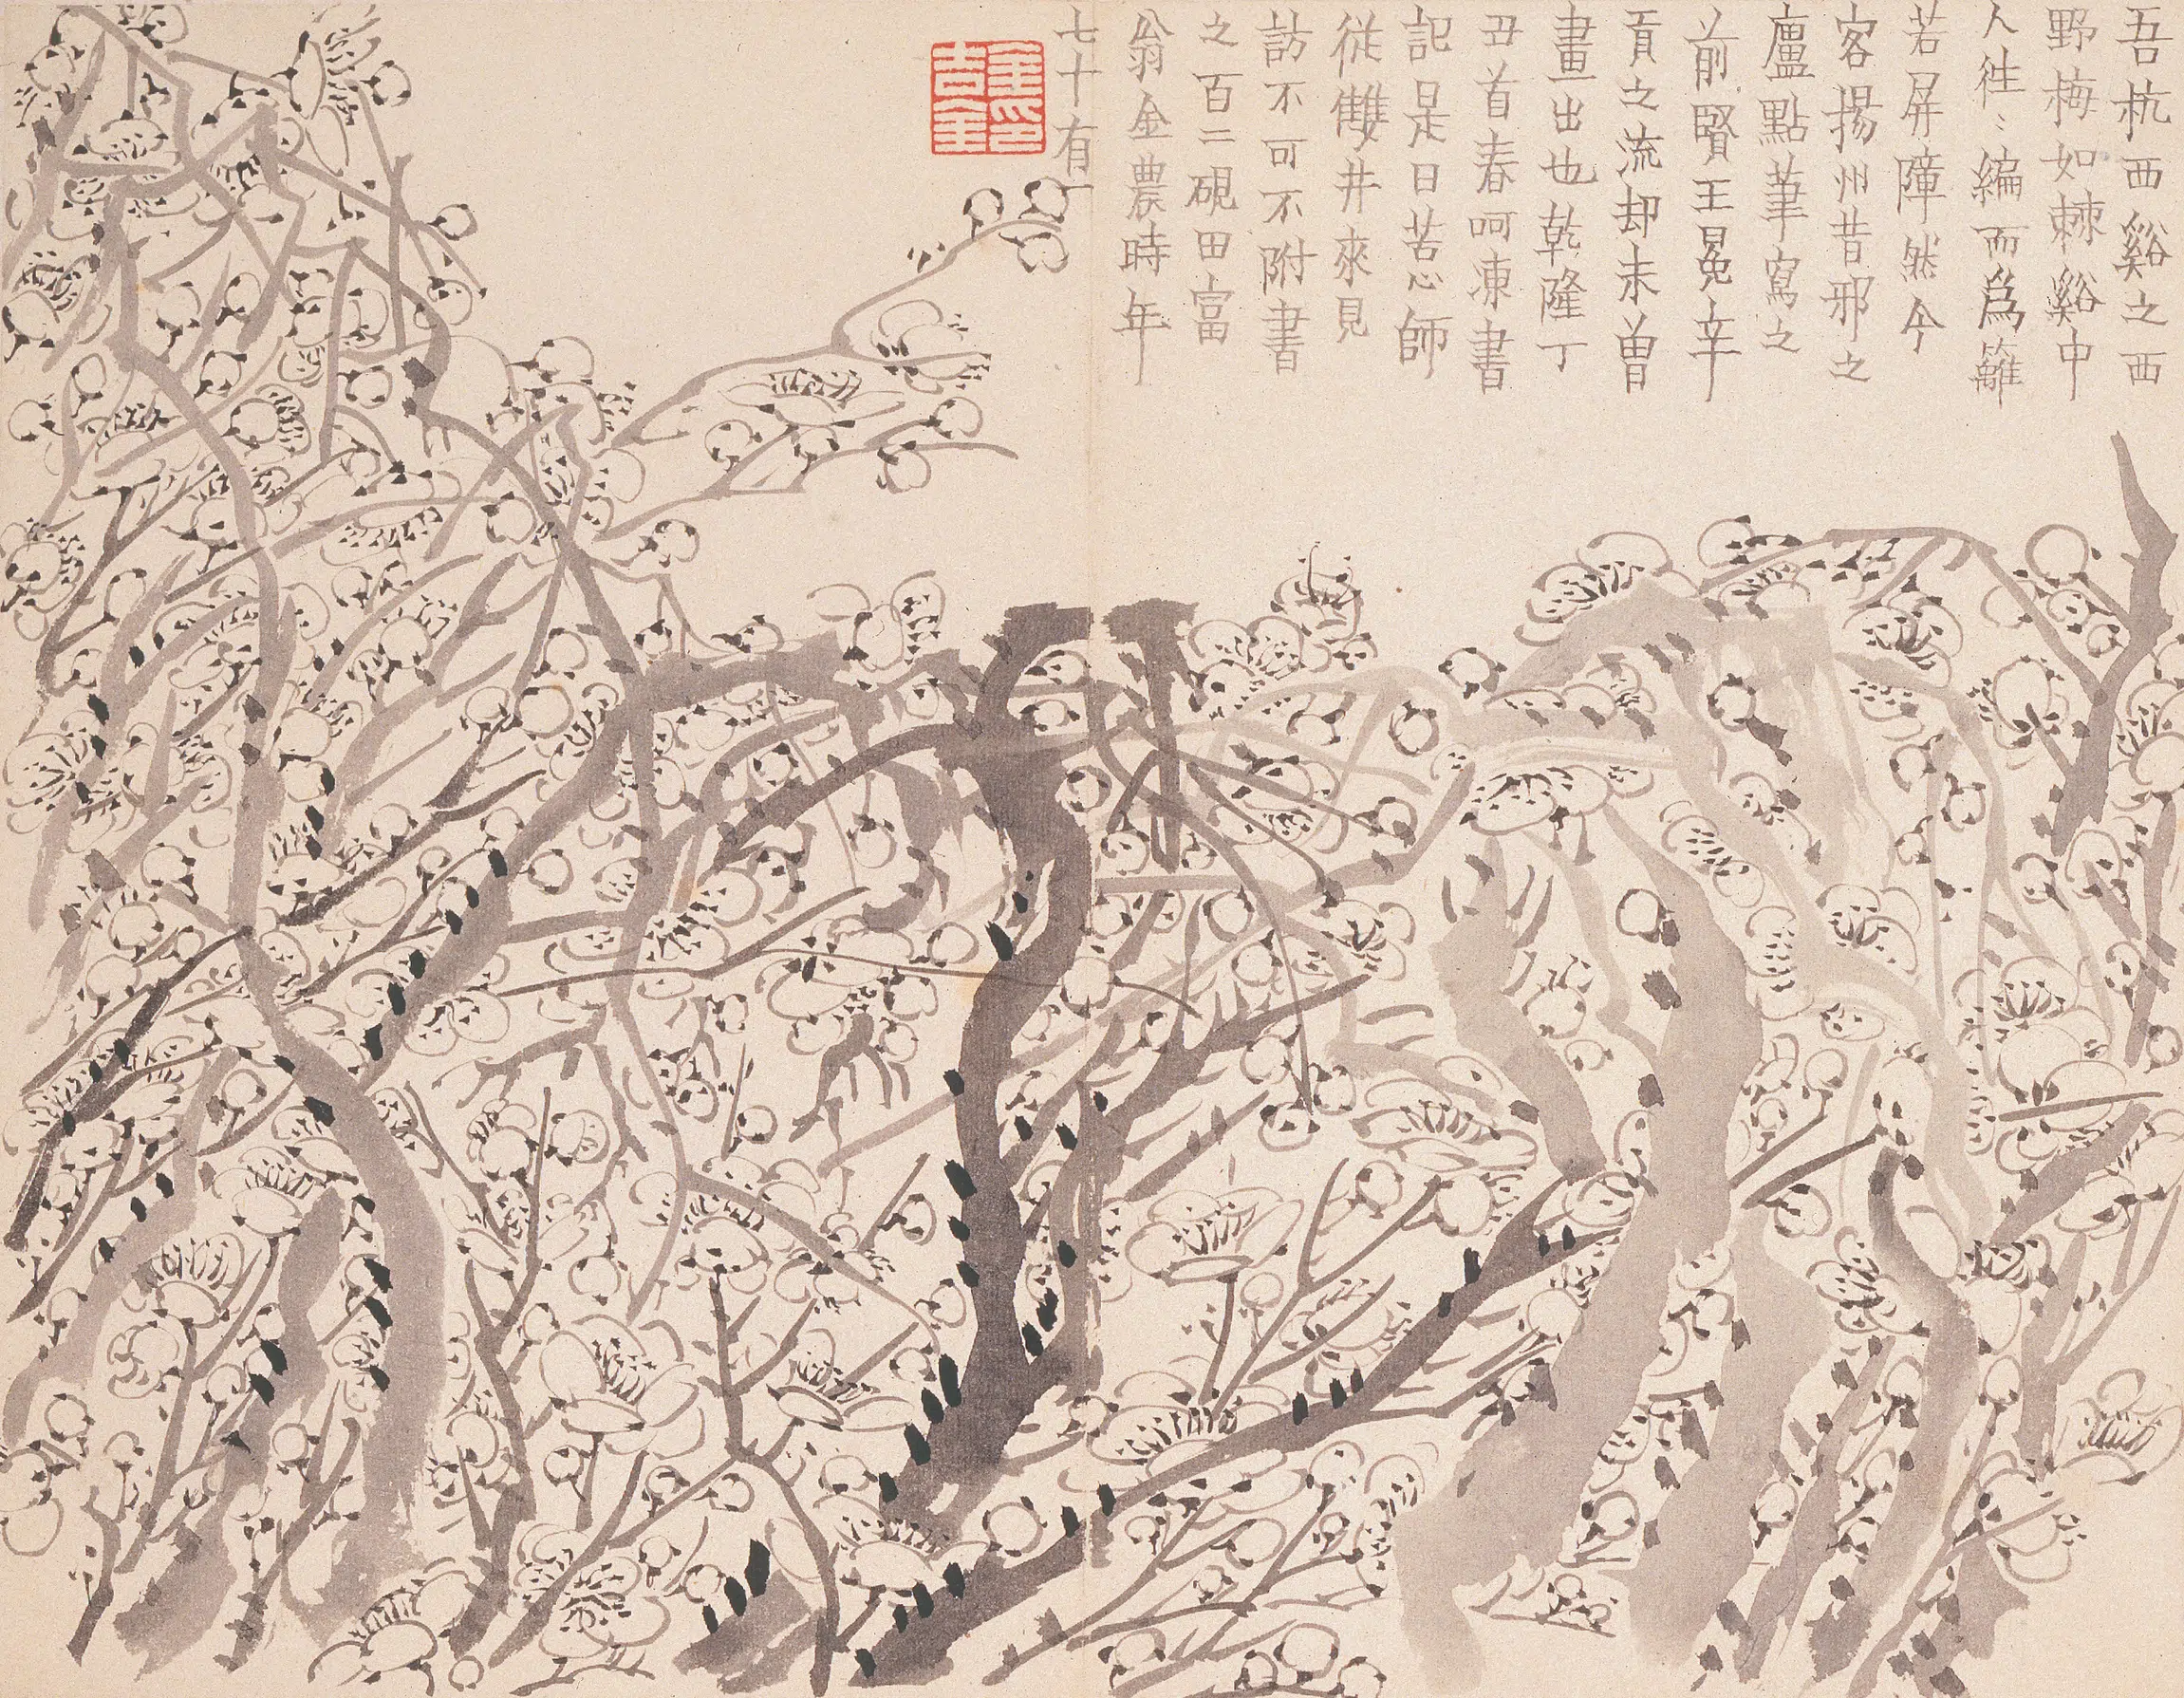 吾杭西谿之西
野梅如棘谿中
人往〻編而爲籬
若屏障然今
客揚州昔邪之
廬點筆寫之
前賢王冕辛
貢之流却未曽
畫出也乾隆丁
丑首春呵凍書
記是日苦心師
從雙井來見
訪不可不附書
之百二硯田富
翁金農時年
七十有一
金印吉金